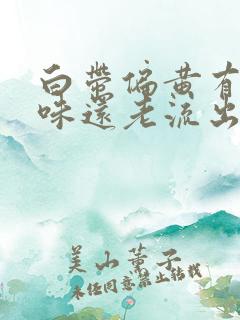 白带偏黄有
味还老流出
美山薰子
未经同意禁止转载